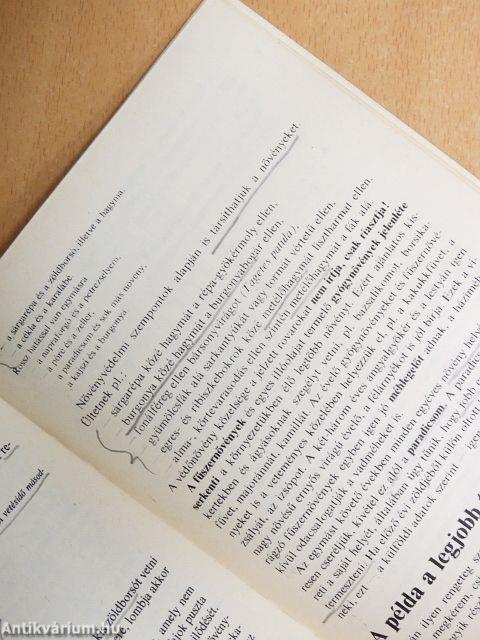 – a sárgarépa és a zöldborsó, illetve a hagyma,
– a cékla és a karalábé.
Rossz hatással van egymásra
– a sárgarépa és a petrezselyem,
– a paradicsom és sok más növény,
– a kajszi és a burgonya
Növényvédelmi szempontok alapján is társíthatjuk a növényeket.
Ültetnek pl.:
– sárgarépa közé hagymát a répa-gyökérmoly ellen.
– burgonya közé hagymát a burgonyabogár ellen.
– fonálféreg ellen bársonyvirágot (Tagetes patula).
– gyümölcsfák alá sarkantyúkát vagy tormát vértetű ellen.
– egres- és ribiszkebokrok közé metélőhagymát lisztharmat ellen.
– alma- körtevarasodás ellen szintén metélőhagyma a fák alá.
A védőnövény közelsége a jelzett rovarokat nem irtja, csak riasztja!
A fűszernövények és egyes illóolajat termelő gyógynövények jelenléte
serkenti a környezetükben élő legtöbb növényt. Ezért ajánlatos kis-
kertekben és ágyásoknak szegélyt vetni, pl. bazsalikomot, borsika-
füvet, majoránnát, kamillát. Az évelő gyógynövényeket és fűszernövé-
nyeket is a veteményes közelében helyezzük el, pl. a kakukkfüvet, a
zsályát, az izsópot. A két három éves angyalgyökér és a lestyán igen
nagy növésű ernyős virágú évelő, a félárnyékot is jól bírja. Ezek a vi-
rágzó fűszernövények egyben igen jó méhlegelőt adnak, a hazmán
kívül odacsalogatják a vadméheket is.
Az egymást követő években minden egyéves növény helyét
resen cseréljük. Kivétel ez alól a paradicsom. A paradicsom
reti a saját helyét, általában úgy tűnik, hogy jobb
termeszteni. Ha előző évi zöldjéből
neki, ezt
a külföldi adatok szerint
A példa a legjobb
ilyen rengeteg
re-
a vetésidő másod-
zöldborsót vetni
lombja akkor
amely nem
jok puszta
Antikvárium.hu